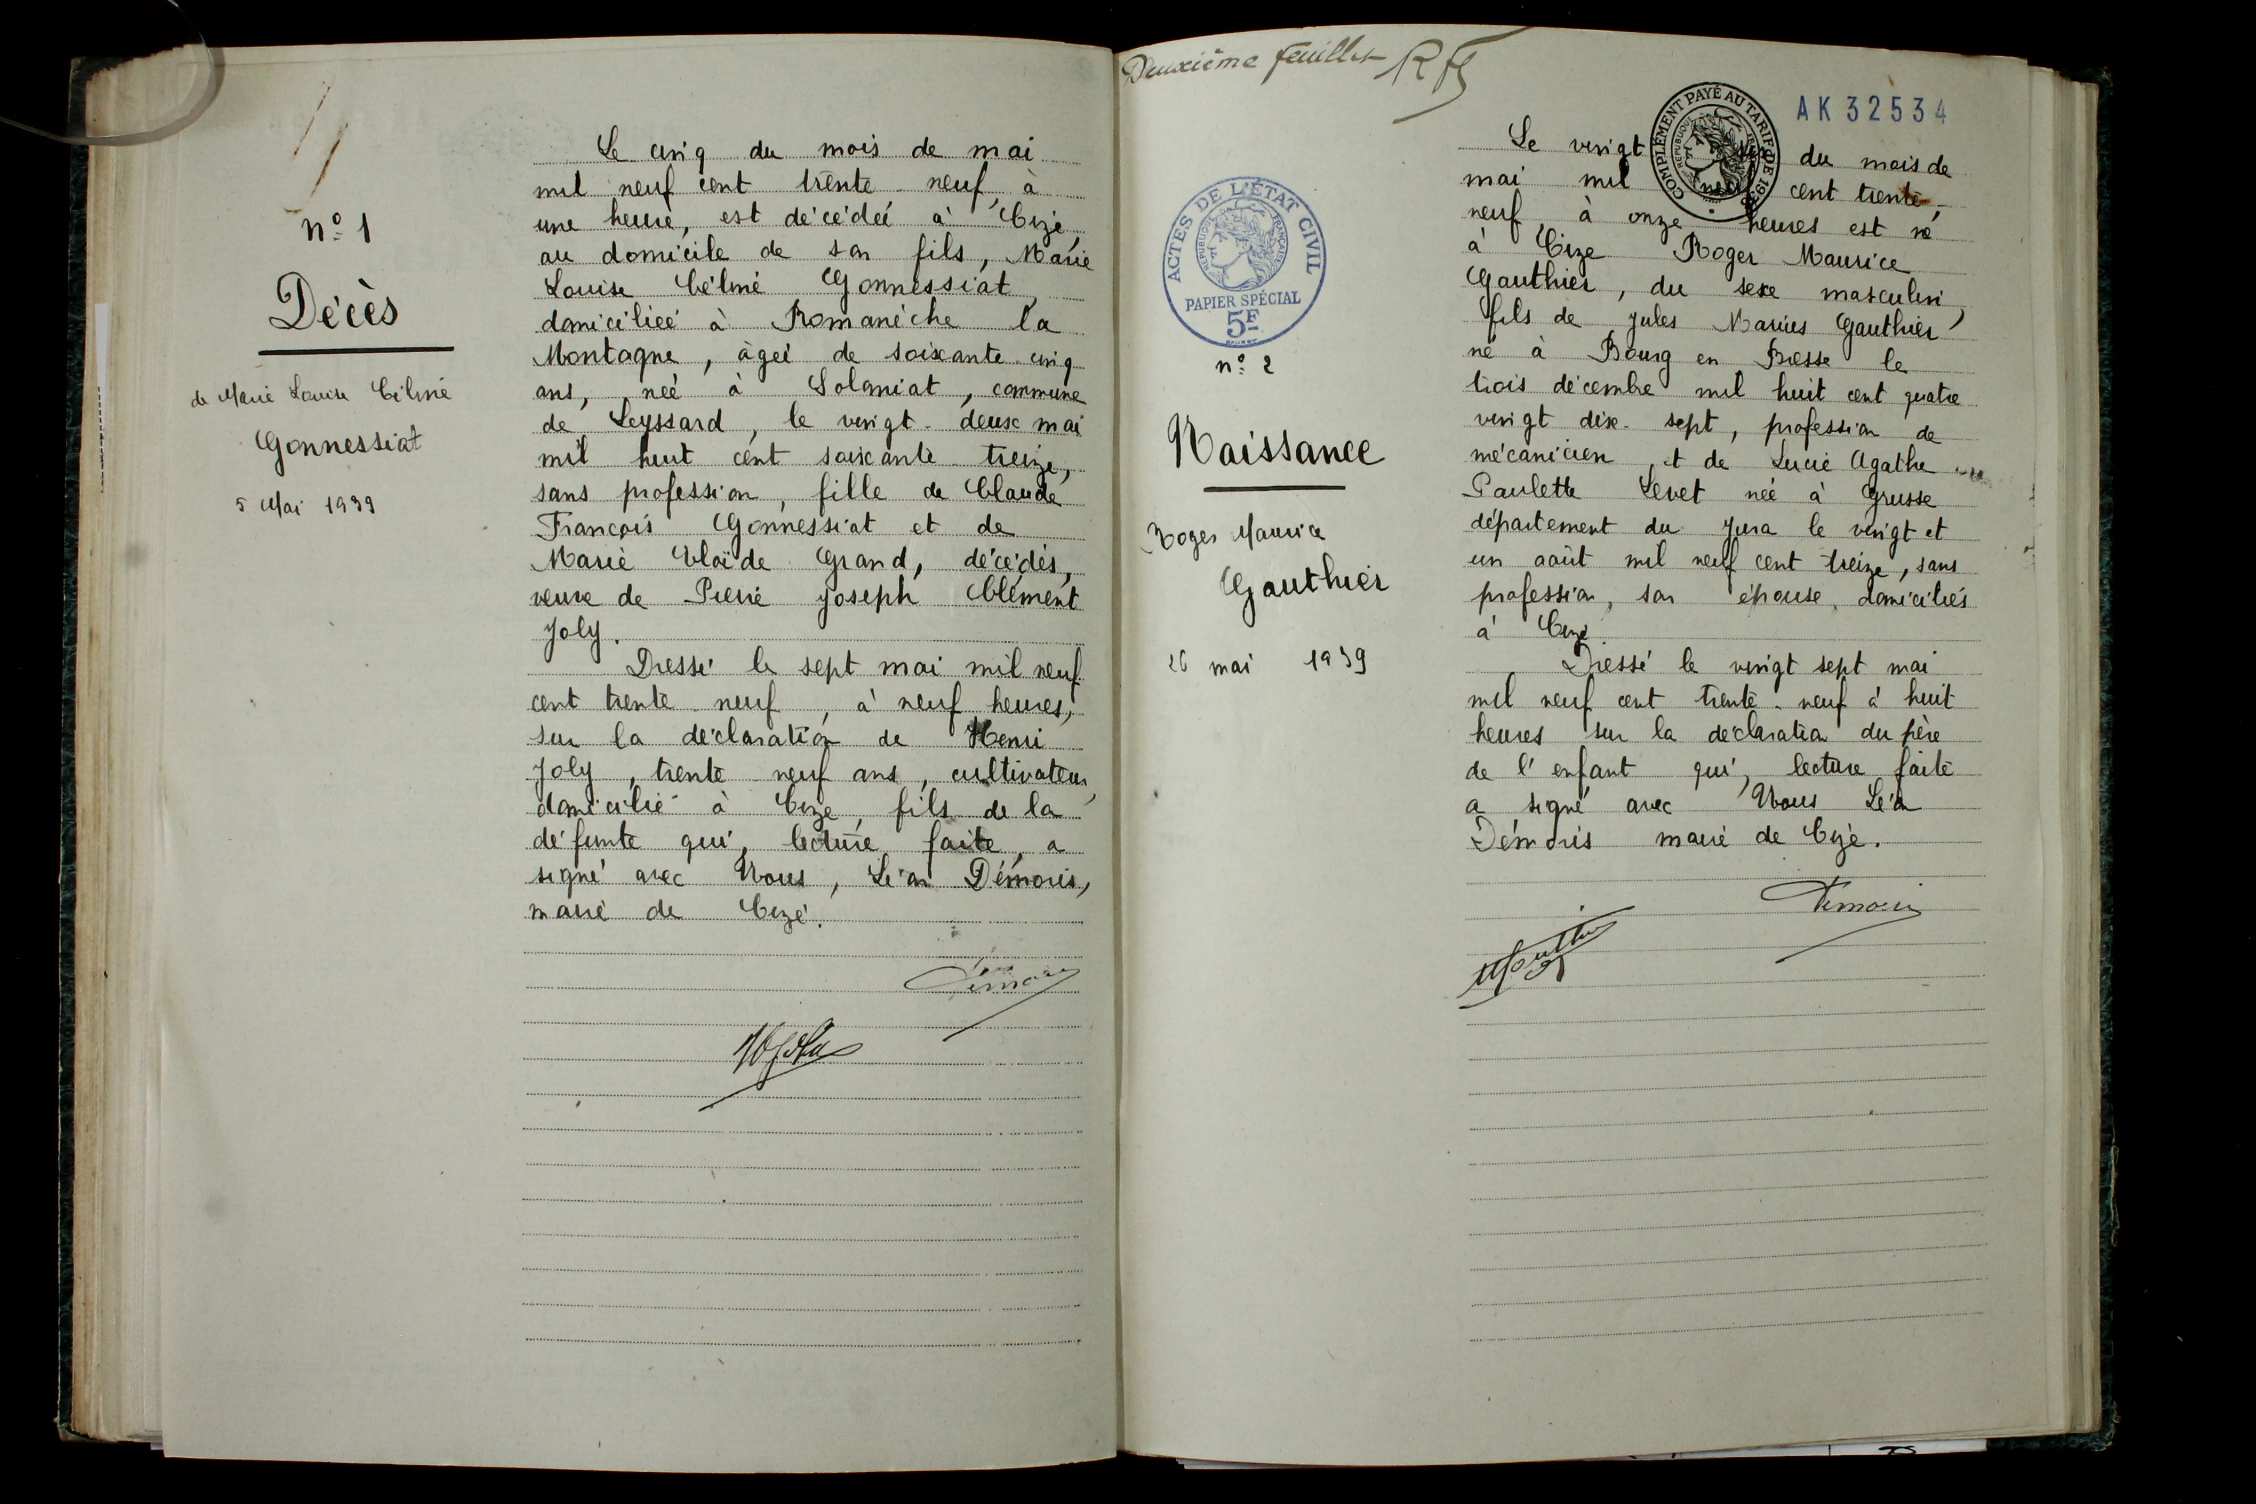 n° 1
Décès
de Marie Louise Céline
Gonnessiat
5 Mai 1939
Le cinq du mois de mai
mil neuf cent trente neuf, à
une heure, est décédée à Cize,
au domicile de son fils, Marie
Louise Céline Gonnessiat,
domiciliée à Romanèche la
Montagne, âgée de soixante cinq
ans, née à Solomiat, commune
de Leyssard, le vingt-deux mai
mil huit cent soixante treize,
sans profession, fille de Claude
François Gonnessiat et de
Marie Grand, décédés,
veuve de Pierre Joseph Clément
Joly.
Dressé le sept mai mil neuf
cent trente neuf, à neuf heures,
sur la déclaration de Henri
Joly, trente neuf ans, cultivateur,
domicilié à Cize, fils de la
défunte qui, lecture faite, a
signé avec Nous, Léon Démoris,
maire de Cize.
Démoris
HJoly
Deuxième feuillet
ACTES DE L'ÉTAT CIVIL
RÉPUBLIQUE FRANÇAISE
PAPIER SPÉCIAL
5F
n° 2
Naissance
Roger Maurice
Gauthier
26 mai 1939
COMPLÉMENT PAYÉ AU TARIF DE
AK 32534
Le vingt six du mois de
mai mil neuf cent trente-
neuf, à onze heures est né
à Cize Roger Maurice
Gauthier, du sexe masculin,
fils de Jules Marius Gauthier
né à Bourg en Bresse le
trois décembre mil huit cent quatre
vingt dix-sept, profession de
mécanicien, et de Lucie Agathe
Paulette Levet née à Grusse
département du Jura le vingt et
un août mil neuf cent treize, sans
profession, son épouse, domiciliés
à Cize.
Dressé le vingt sept mai
mil neuf cent trente-neuf à huit
heures sur la déclaration du père
de l'enfant qui, lecture faite
a signé avec Nous Léon
Démoris maire de Cize.
Démoris